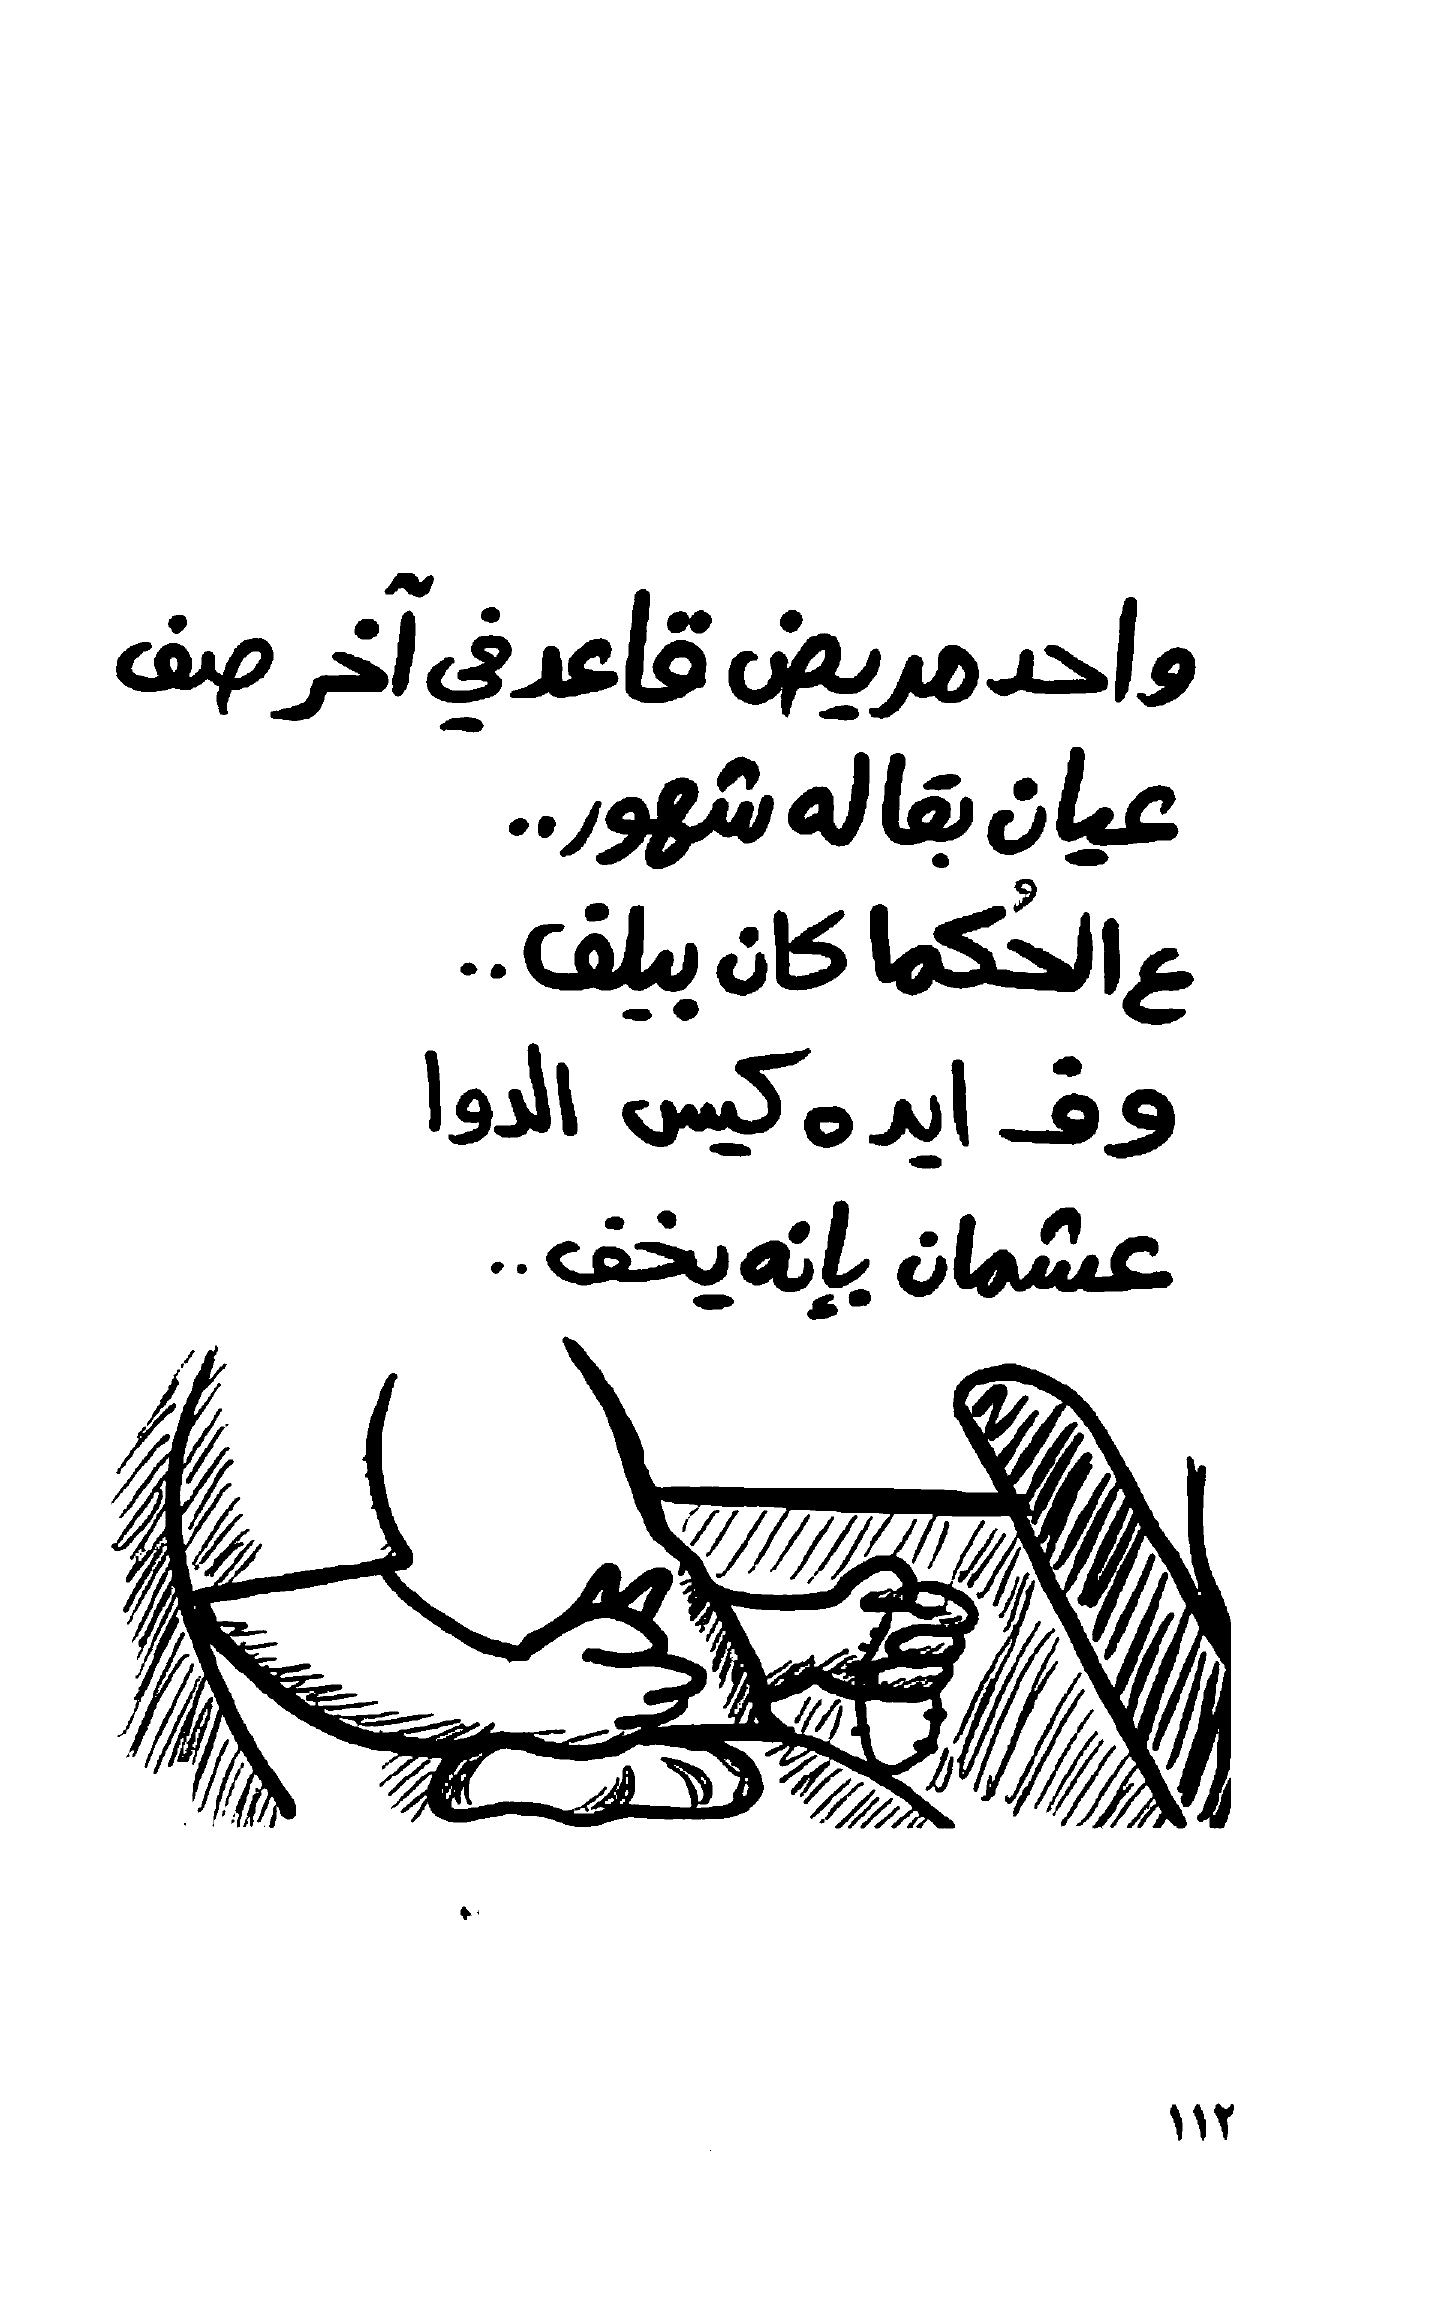 واحد مريض قاعد في آخر صف
عيان بقاله شهور..
ع الحُكما كان بيلف..
وف ايده كيس الدوا
عشمان بإنه يخف..
١١٢